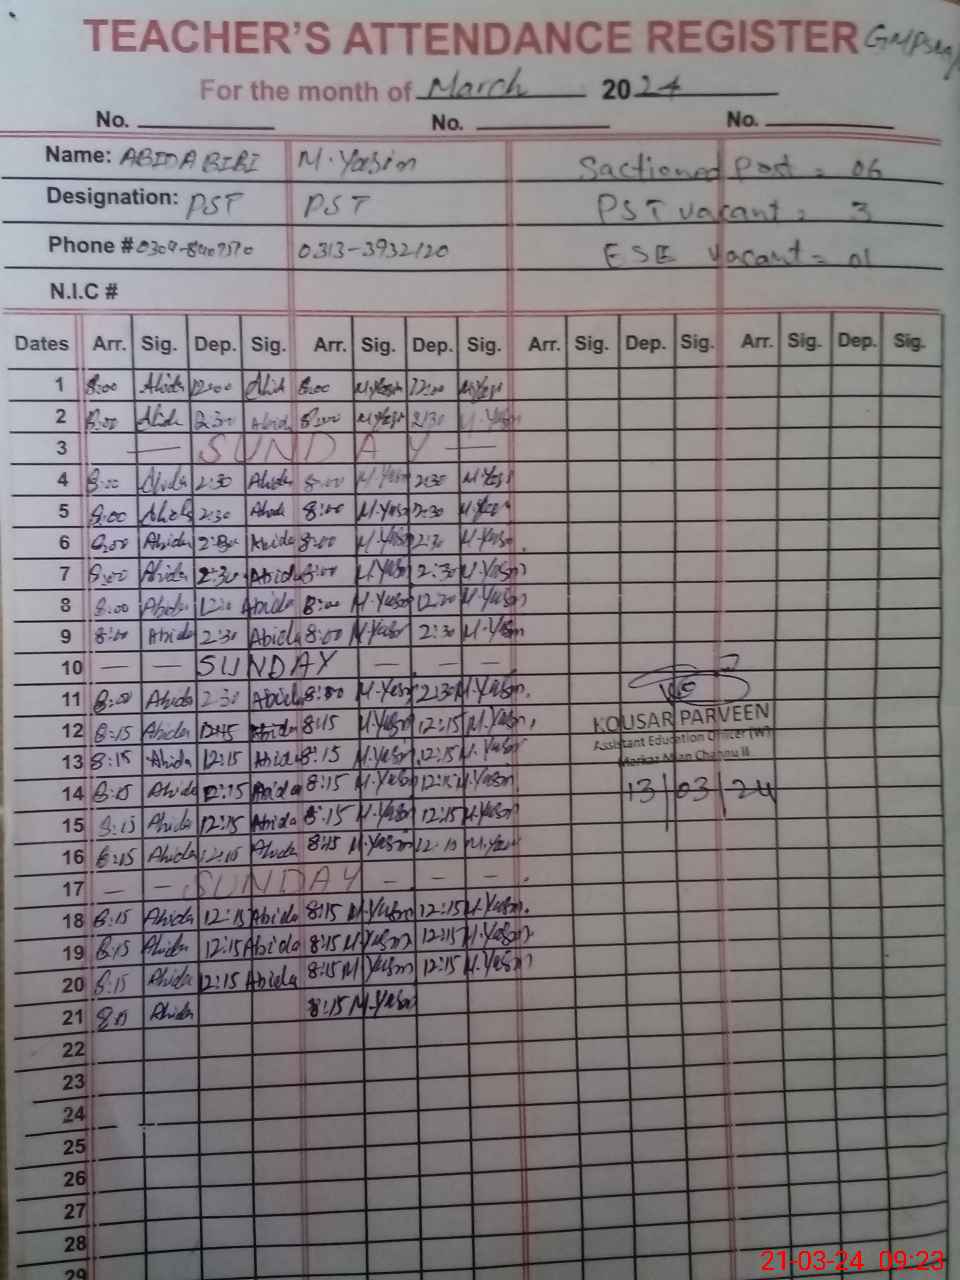 TEACHER'S ATTENDANCE REGISTER
For the month of March 2024
No. No. No.
Name: ABIDA BIBI M. Yasin Sactioned Post = 06
Designation: PST PST PST vacant = 3
Phone # 0313-3932120 ESE vacant = 01
N.I.C #
Dates Arr. Sig. Dep. Sig. Arr. Sig. Dep. Sig. Arr. Sig. Dep. Sig. Arr. Sig. Dep. Sig.
1 8:00 Abida 12:00 Abid 8:00 M.Yasi 12:00 M.Yasi
2 8:00 Abida 2:30 Abida 8:00 M.Yasin 2:30 M.Yasin
3 — SUNDAY —
4 8:00 Abida 2:30 Abida 8:00 M.Yasin 2:30 M.Yasi
5 8:00 Abida 2:30 Abida 8:00 M.Yasin 2:30 M.Yasin
6 8:00 Abida 2:30 Abida 8:00 M.Yasin 2:30 M.Yasin.
7 8:00 Abida 2:30 Abida 8:00 M.Yasin 2:30 M.Yasin
8 8:00 Abida 12:00 Abida 8:00 M.Yasin 12:00 M.Yasin
9 8:00 Abida 2:30 Abida 8:00 M.Yasin 2:30 M.Yasin
10 — — SUNDAY — — —
11 8:00 Abida 2:30 Abida 8:00 M.Yasin 2:30 M.Yasin.
12 8:15 Abida 12:15 Abida 8:15 M.Yasin 12:15 M.Yasin.
KOUSAR PARVEEN
Assistant Education Officer (W)
Markaz Mian Channu II
13 8:15 Abida 12:15 Abida 8:15 M.Yasin 12:15 M.Yasin
14 8:15 Abida 12:15 Abida 8:15 M.Yasin 12:15 M.Yasin. 13/03/24
15 8:15 Abida 12:15 Abida 8:15 M.Yasin 12:15 M.Yasin
16 8:15 Abida 12:15 Abida 8:15 M.Yasin 12:15 M.Yasin
17 — — SUNDAY — — —
18 8:15 Abida 12:15 Abida 8:15 M.Yasin 12:15 M.Yasin.
19 8:15 Abida 12:15 Abida 8:15 M.Yasin 12:15 M.Yasin
20 8:15 Abida 12:15 Abida 8:15 M.Yasin 12:15 M.Yasin
21 Abida 8:15 M.Yasin
22
23
24
25
26
27
28
29
21-03-24 09:23